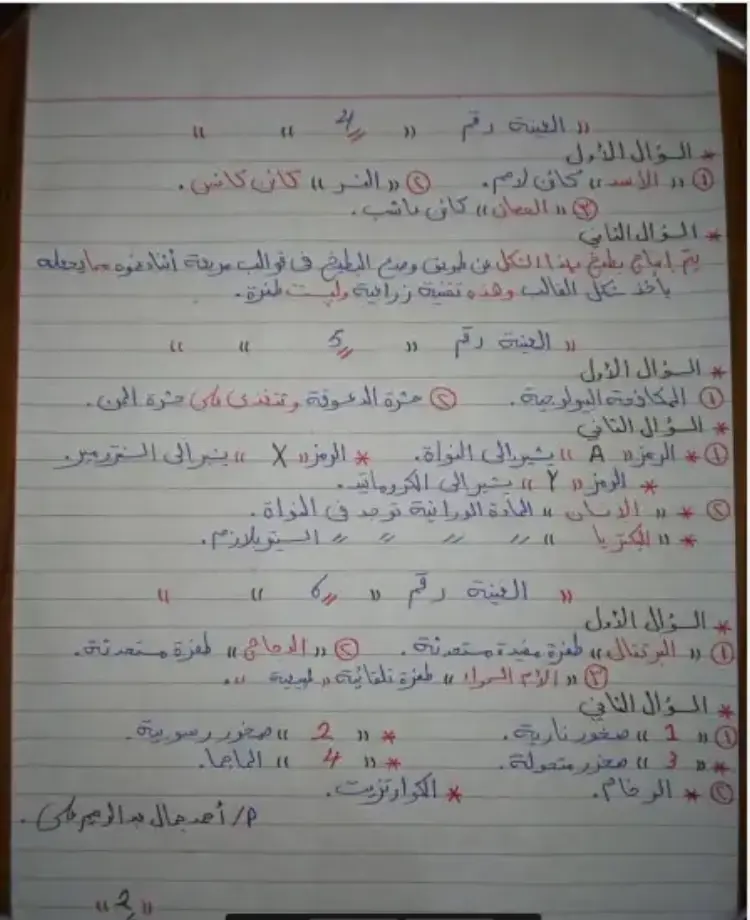 « العينة رقم « 4 » » »
* السؤال الأول
① « الأسد » كائن لاحم. ② « النسر » كائن كانس.
③ « الحصان » كائن عاشب.
* السؤال الثاني
يتم إنتاج بطيخ بهذا الشكل عن طريق وضع البطيخ فى قوالب مربعة أثناء نموه مما يجعله
يأخذ شكل القالب وهذه تقنية زراعية وليست طفرة.
« العينة رقم « 5 » » »
* السؤال الأول
① المكافحة البيولوجية. ② حشرة الدعسوقة وتتغذى على حشرة المن.
* السؤال الثاني
① * الرمز « A » يشير إلى النواة. * الرمز « X » يشير إلى السنترومير.
* الرمز « Y » يشير إلى الكروماتيد.
② * « الإنسان » المادة الوراثية توجد فى النواة.
* « البكتريا » 〃 〃 〃 〃 السيتوبلازم.
« العينة رقم « 6 » » »
* السؤال الأول
① « البرتقال » طفرة مفيدة مستحدثة. ② « الدجاج » طفرة مستحدثة.
③ « الأم السوداء » طفرة تلقائية « طبيعية ».
* السؤال الثاني
① « 1 » صخور نارية. * « 2 » صخور رسوبية.
* « 3 » صخور متحولة. * « 4 » الماجما.
② * الرخام. * الكوارتزيت.
م/ أحمد جمال عبد الرحيم مكى.
« 2 »